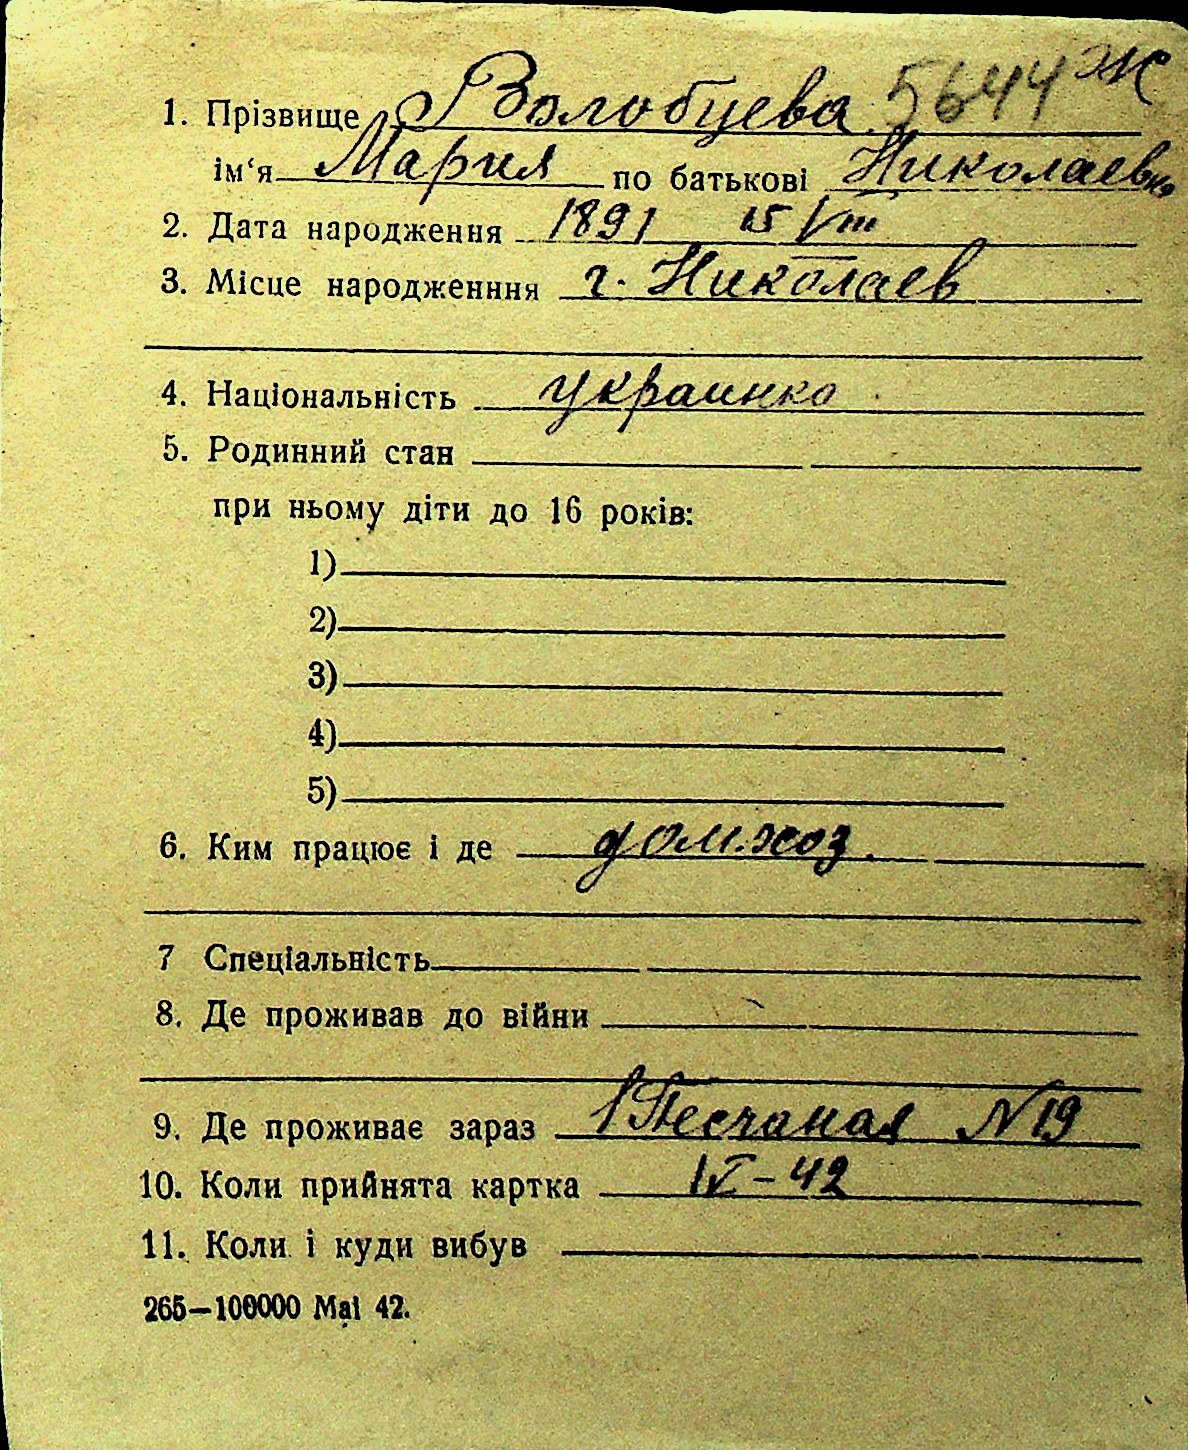 5644 Ж
1. Прізвище Волобцева
ім‘я Мария по батькові Николаевна
2. Дата народження 1891 15/VIII
3. Місце народженння г. Николаев
4. Національність украинка
5. Родинний стан
при ньому діти до 16 років:
1)
2)
3)
4)
5)
6. Ким працює і де дом.хоз.
7 Спеціальність
8. Де проживав до війни
9. Де проживає зараз 1 Песчаная N 19
10. Коли прийнята картка IX-42
11. Коли і куди вибув
265—100000 Маі 42.